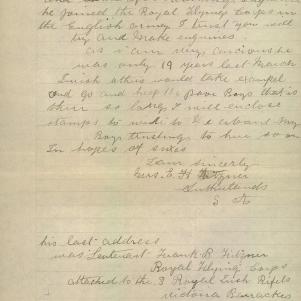 he joined the Royal Flying Corps in
the English army I trust you will
try and make enquires
as i am very ancious he
was only 19 years last March
I wish others would take
and go and help the poor Boys that is
thier so long I will enclose
stamps to
Boy trusting to hear soon
In hopes of
I am sincerly
Mrs. E. H. Filsner
Sutherlands
S A
his last address
was Lieutenant Frank R Filsner
Royal Flying Corps
attached to the 3 Royal Irish Rifels
Victoria Barrackes